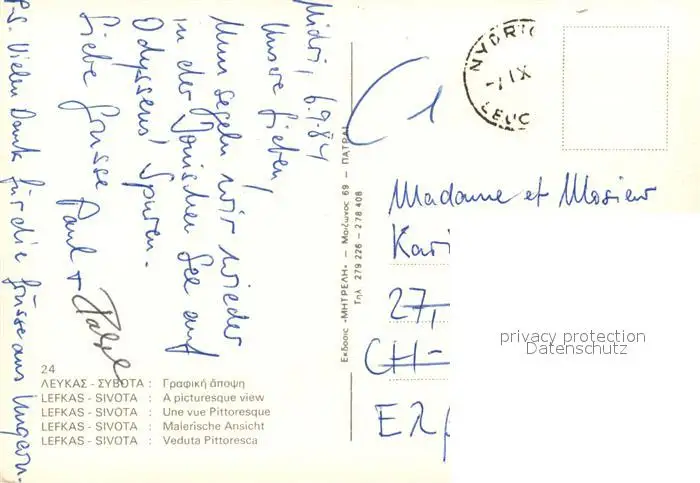 Nidri, 6.9.84
Unsere Lieben,
Nun segeln wir wieder
in der Ionischen See auf
Odysseus' Spuren.
Liebe Grüsse Paul +
P.S. Vielen Dank für die Grüsse aus Ungarn.
24
ΛΕΥΚΑΣ - ΣΥΒΟΤΑ : Γραφική άποψη
LEFKAS - SIVOTA : A picturesque view
LEFKAS - SIVOTA : Une vue Pittoresque
LEFKAS - SIVOTA : Malerische Ansicht
LEFKAS - SIVOTA : Veduta Pittoresca
Εκδοσις «ΜΗΤΡΕΛΗ» — Μαιζωνος 69 — ΠΑΤΡΑΙ
Τηλ. 279 226 - 278 408
NYDRI
IX
LEUC
Madame et Mosieur
Kari
27,
CH-